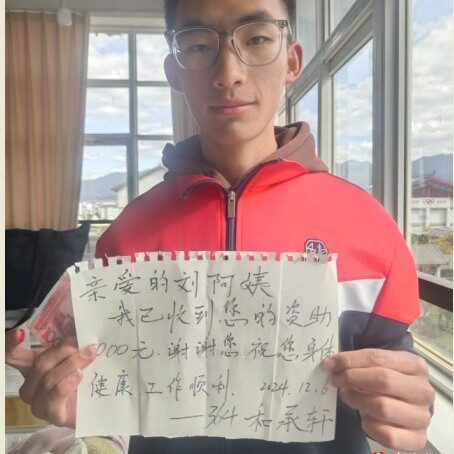 亲爱的刘阿姨
我已收到您的资助
000元. 谢谢您 祝您身体
健康 工作顺利. 2024.12.6
—— 和承轩